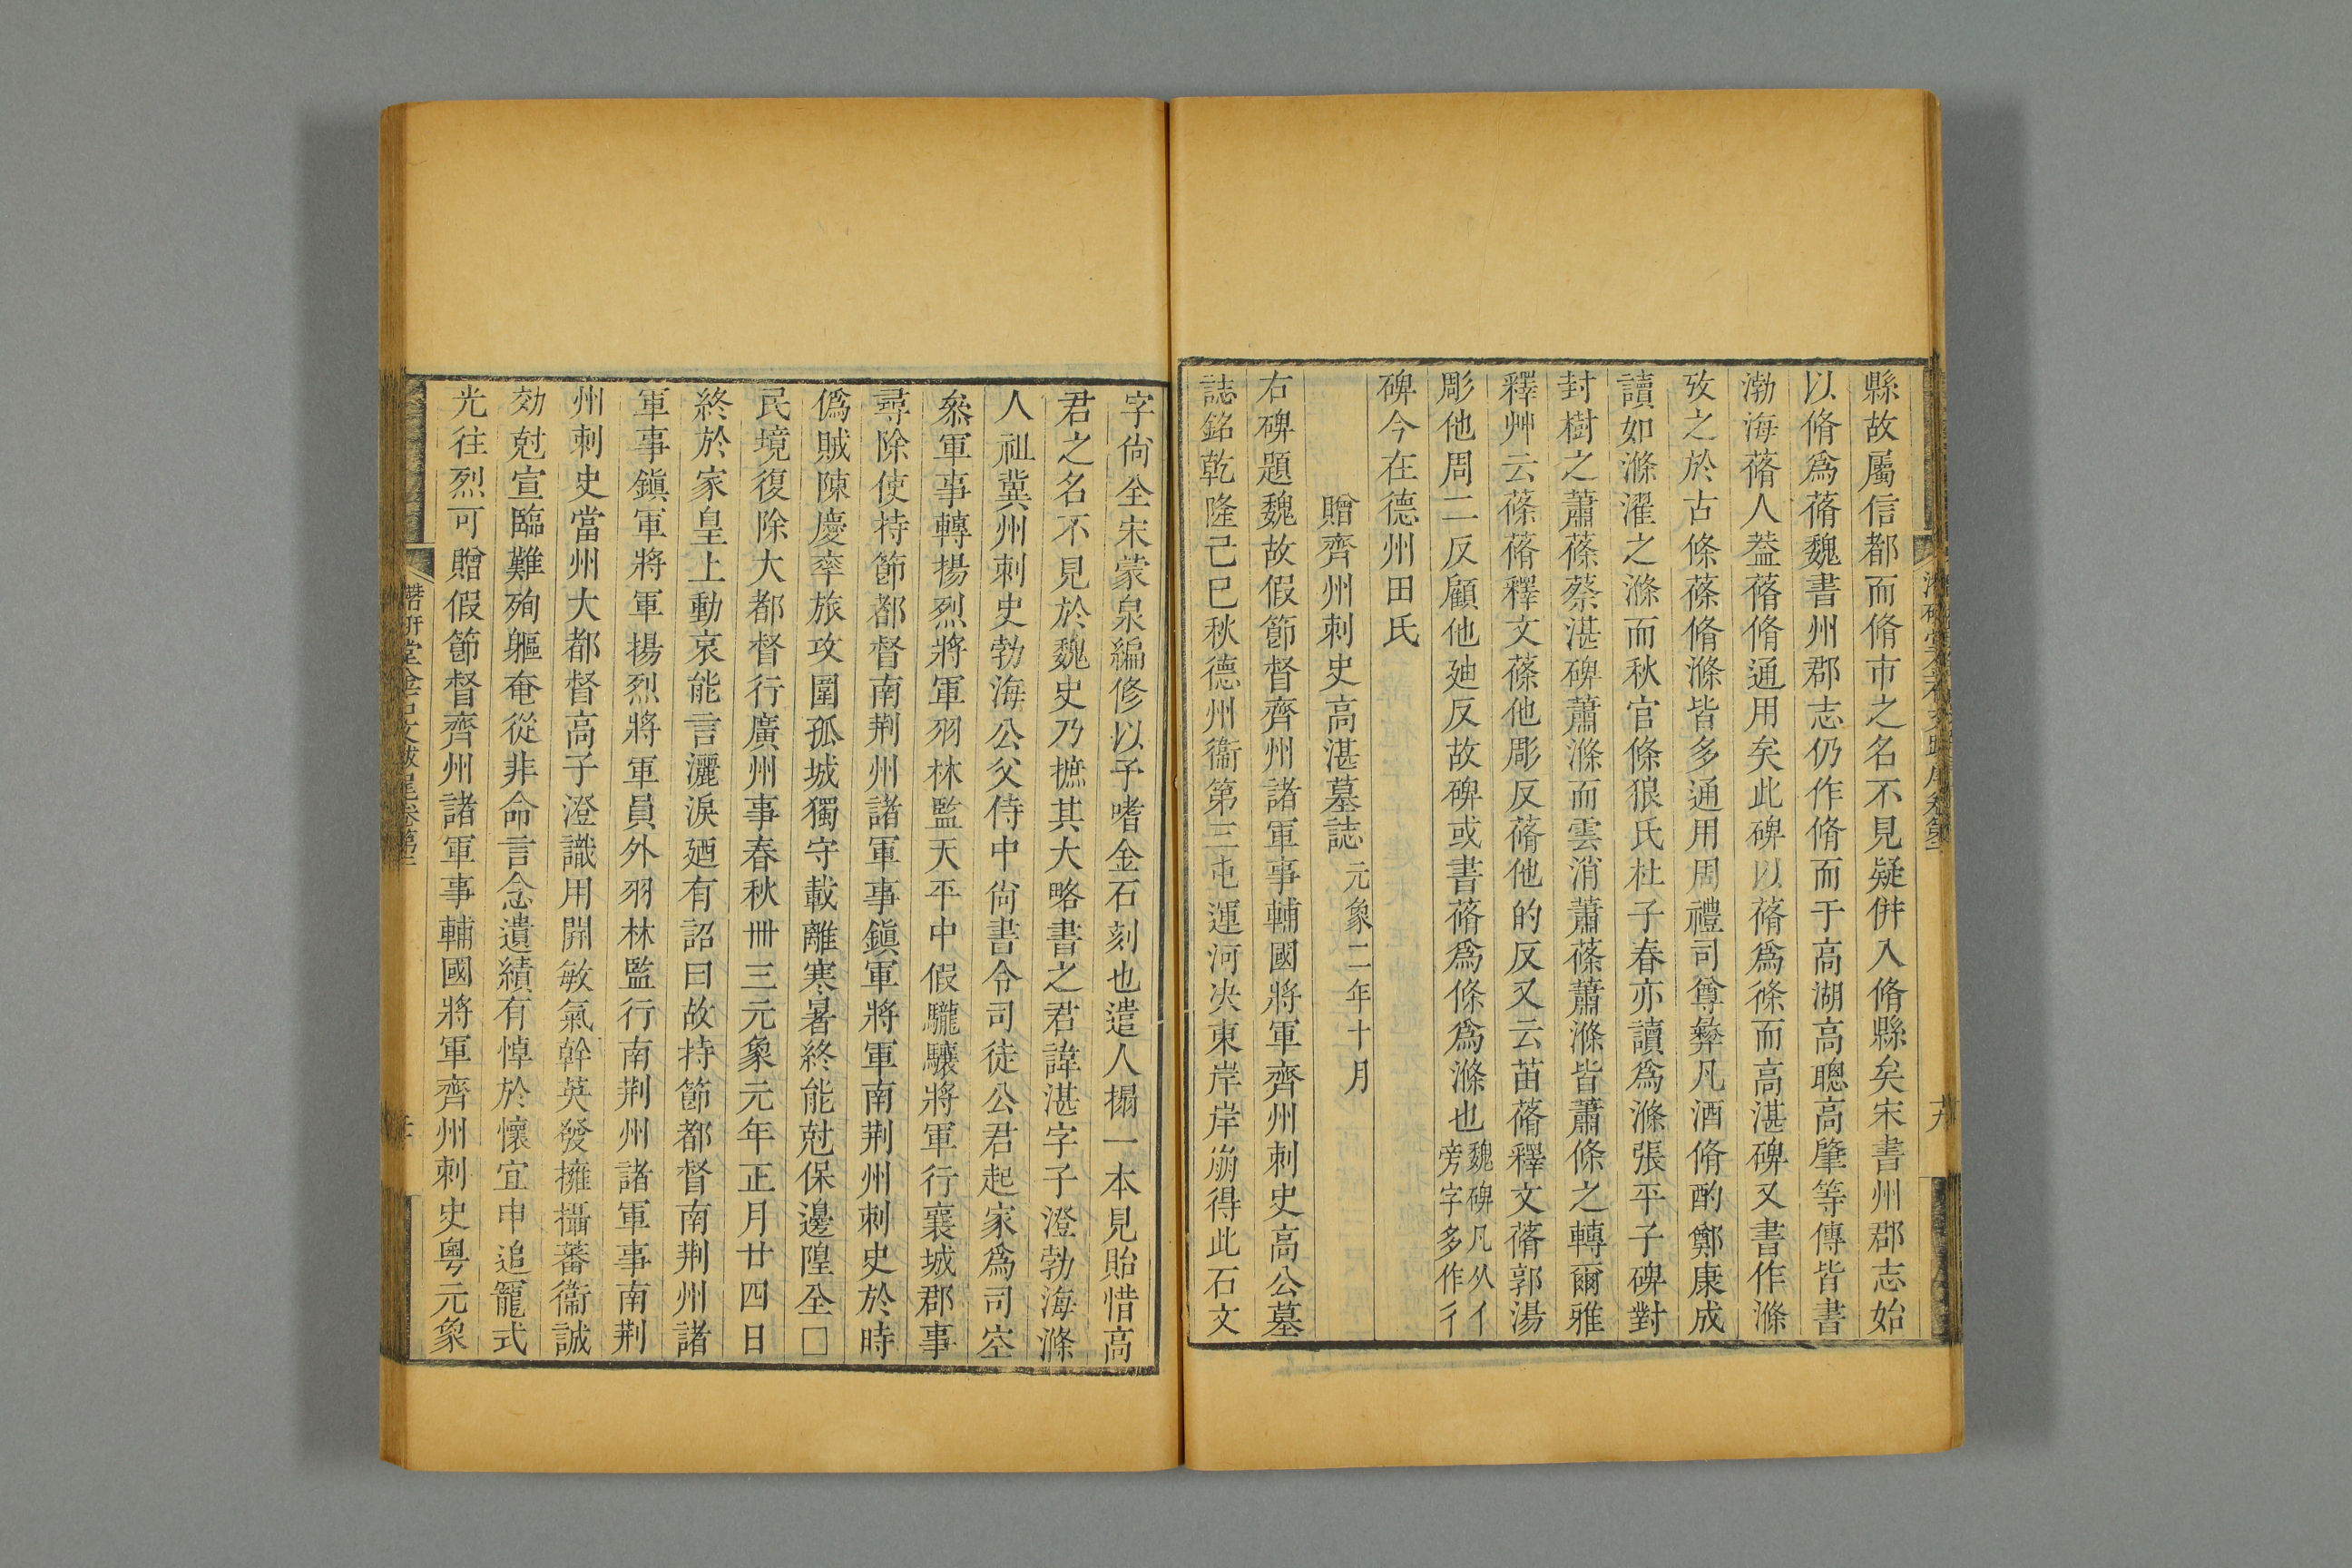 縣故屬信都而脩市之名不見疑併入脩縣矣宋書州郡志始
以脩爲蓨魏書州郡志仍作脩而于高湖高聰高肇等傳皆書
渤海蓨人葢蓨脩通用矣此碑以蓨爲條而高湛碑又書作滌
攷之於古條蓧脩滌皆多通用周禮司尊彝凡酒脩酌鄭康成
讀如滌濯之滌而秋官條狼氏杜子春亦讀爲滌張平子碑對
封樹之蕭蓧蔡湛碑蕭滌而雲消蕭蓧蕭滌皆蕭條之轉爾雅
釋艸云蓧蓨釋文蓧他彫反蓨他的反又云苗蓨釋文蓨郭湯
彫他周二反顧他廸反故碑或書蓨爲條爲滌也魏碑凡从亻
旁字多作彳
碑今在德州田氏
贈齊州刺史高湛墓誌元象二年十月
右碑題魏故假節督齊州諸軍事輔國將軍齊州刺史高公墓
誌銘乾隆己巳秋德州衞第三屯運河决東岸岸崩得此石文
字尙全宋蒙泉編修以予嗜金石刻也遣人搨一本見貽惜高
君之名不見於魏史乃摭其大略書之君諱湛字子澄勃海滌
人祖冀州刺史勃海公父侍中尙書令司徒公君起家爲司空
叅軍事轉揚烈將軍羽林監天平中假驡驤將軍行襄城郡事
尋除使持節都督南荆州諸軍事鎭軍將軍南荆州刺史於時
僞賊陳慶率旅攻圍孤城獨守載離寒暑終能尅保邊隍全□
民境復除大都督行廣州事春秋卌三元象元年正月廿四日
終於家皇上動哀能言灑淚廼有詔曰故持節都督南荆州諸
軍事鎭軍將軍揚烈將軍員外羽林監行南荆州諸軍事南荆
州刺史當州大都督高子澄識用開敏氣幹英發擁攝蕃衞誠
効尅宣臨難殉軀奄從非命言念遺績有悼於懷宜申追寵式
光往烈可贈假節督齊州諸軍事輔國將軍齊州刺史粵元象